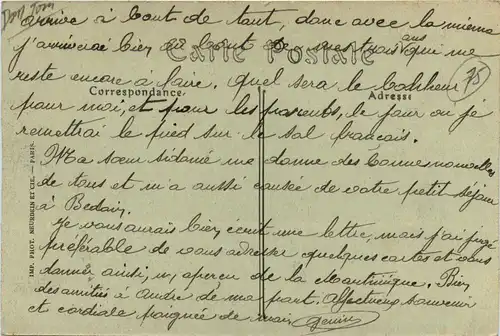 Dom Tom
arrive à bout de tout, donc avec la mienne
j'arriverai bien au bout de mes trois ans qui me
Carte Postale
reste encore à faire. Quel sera le bonheur
75
Correspondance.
Adresse:
pour moi, et pour les parents, le jour où je
remettrai le pied sur le sol français.
Ma sœur Sidonie me donne des bonnes nouvelles
de tous et m'a aussi causée de votre petit séjour
à Bedain.
Je vous aurais bien écrit une lettre, mais j'ai jugé
préférable de vous adresser quelques cartes et vous
donner ainsi, un aperçu de la Martinique. Bien
des amitiés à André de ma part. Affectueux souvenir
et cordiale poignée de main
IMP. PHOT. NEURDEIN ET CIE. — PARIS.